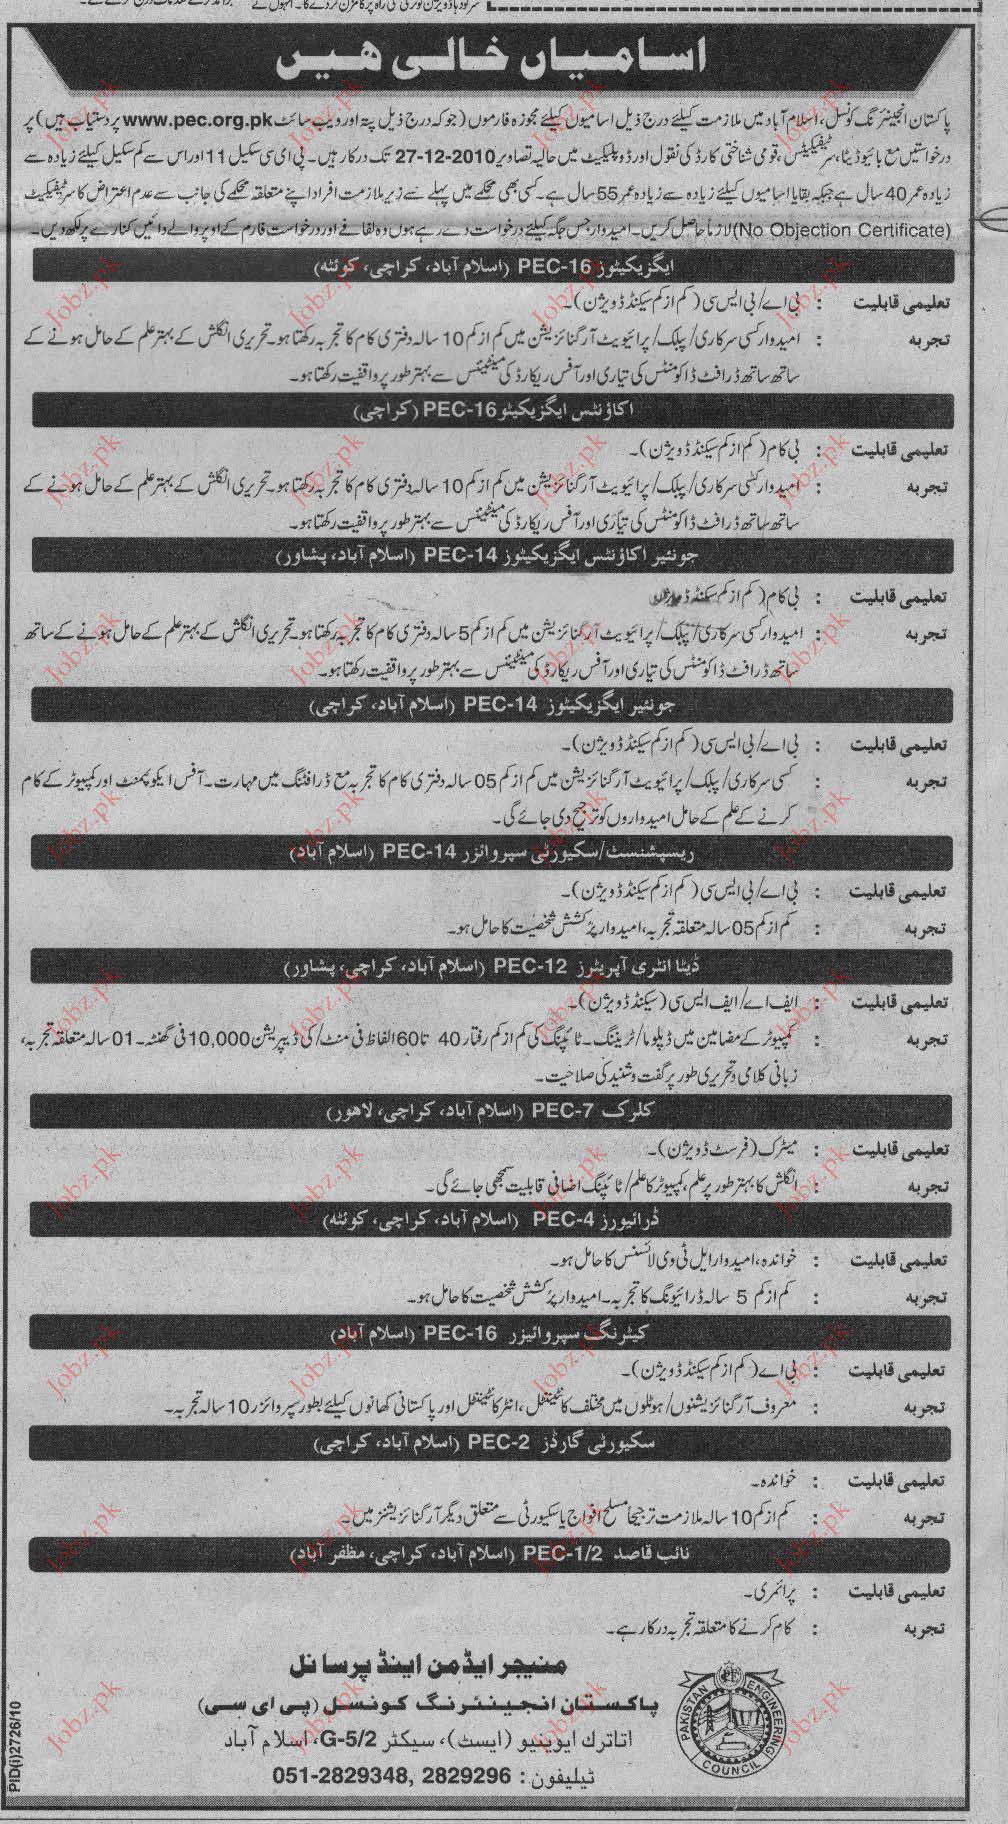 اسامیاں خالی ہیں
پاکستان انجینئرنگ کونسل، اسلام آباد میں ملازمت کیلئے درج ذیل اسامیوں کیلئے مجوزہ فارموں (جو کہ درج ذیل پتہ اور ویب سائٹ www.pec.org.pk پر دستیاب ہیں) پر
درخواستیں مع بائیو ڈیٹا، سرٹیفکیٹس، قومی شناختی کارڈ کی نقول اور ڈوپلیکیٹ میں حالیہ تصاویر 27-12-2010 تک درکار ہیں۔ پی ای سی سکیل 11 اور اس سے کم سکیل کیلئے زیادہ سے
زیادہ عمر 40 سال ہے جبکہ بقایا اسامیوں کیلئے زیادہ سے زیادہ عمر 55 سال ہے۔ کسی بھی محکمے میں پہلے سے زیر ملازمت افراد اپنے متعلقہ محکمے کی جانب سے عدم اعتراض کا سرٹیفکیٹ
(No Objection Certificate) لازماً حاصل کریں۔ امیدوار جس جگہ کیلئے درخواست دے رہے ہوں وہ لفافے اور درخواست فارم کے اوپر والے دائیں کنارے پر لکھ دیں۔
ایگزیکیٹوز PEC-16 (اسلام آباد، کراچی، کوئٹہ)
تعلیمی قابلیت : بی اے/بی ایس سی (کم از کم سیکنڈ ڈویژن)۔
تجربہ : امیدوار کسی سرکاری/پبلک/پرائیویٹ آرگنائزیشن میں کم از کم 10 سالہ دفتری کام کا تجربہ رکھتا ہو۔ تحریری انگلش کے بہتر علم کے حامل ہونے کے
ساتھ ساتھ ڈرافٹ ڈاکومنٹس کی تیاری اور آفس ریکارڈ کی مینٹیننس سے بہتر طور پر واقفیت رکھتا ہو۔
اکاؤنٹس ایگزیکیٹو PEC-16 (کراچی)
تعلیمی قابلیت : بی کام (کم از کم سیکنڈ ڈویژن)۔
تجربہ : امیدوار کسی سرکاری/پبلک/پرائیویٹ آرگنائزیشن میں کم از کم 10 سالہ دفتری کام کا تجربہ رکھتا ہو۔ تحریری انگلش کے بہتر علم کے حامل ہونے کے
ساتھ ساتھ ڈرافٹ ڈاکومنٹس کی تیاری اور آفس ریکارڈ کی مینٹیننس سے بہتر طور پر واقفیت رکھتا ہو۔
جونئیر اکاؤنٹس ایگزیکیٹوز PEC-14 (اسلام آباد، پشاور)
تعلیمی قابلیت : بی کام (کم از کم سیکنڈ ڈویژن
تجربہ : امیدوار کسی سرکاری/پبلک/پرائیویٹ آرگنائزیشن میں کم از کم 5 سالہ دفتری کام کا تجربہ رکھتا ہو۔ تحریری انگلش کے بہتر علم کے حامل ہونے کے ساتھ
ساتھ ڈرافٹ ڈاکومنٹس کی تیاری اور آفس ریکارڈ کی مینٹیننس سے بہتر طور پر واقفیت رکھتا ہو۔
جونئیر ایگزیکیٹوز PEC-14 (اسلام آباد، کراچی)
تعلیمی قابلیت : بی اے/بی ایس سی (کم از کم سیکنڈ ڈویژن)۔
تجربہ : کسی سرکاری/پبلک/پرائیویٹ آرگنائزیشن میں کم از کم 05 سالہ دفتری کام کا تجربہ مع ڈرافٹنگ میں مہارت۔ آفس ایکوپمنٹ اور کمپیوٹر کے کام
کرنے کے علم کے حامل امیدواروں کو ترجیح دی جائے گی۔
ریسپشنسٹ/سکیورٹی سپروائزر PEC-14 (اسلام آباد)
تعلیمی قابلیت : بی اے/بی ایس سی (کم از کم سیکنڈ ڈویژن)۔
تجربہ : کم از کم 05 سالہ متعلقہ تجربہ، امیدوار پرکشش شخصیت کا حامل ہو۔
ڈیٹا انٹری آپریٹرز PEC-12 (اسلام آباد، کراچی، پشاور)
تعلیمی قابلیت : ایف اے/ایف ایس سی (سیکنڈ ڈویژن)۔
تجربہ : کمپیوٹر کے مضامین میں ڈپلوما/ٹریننگ۔ ٹائپنگ کی کم از کم رفتار 40 تا 60 الفاظ فی منٹ/کی ڈیپریشن 10,000 فی گھنٹہ۔ 01 سالہ متعلقہ تجربہ،
زبانی کلامی و تحریری طور پر گفت و شنید کی صلاحیت۔
کلرک PEC-7 (اسلام آباد، کراچی، لاہور)
تعلیمی قابلیت : میٹرک (فرسٹ ڈویژن)۔
تجربہ : انگلش کا بہتر طور پر علم، کمپیوٹر کا علم/ٹائپنگ اضافی قابلیت سمجھی جائے گی۔
ڈرائیورز PEC-4 (اسلام آباد، کراچی، کوئٹہ)
تعلیمی قابلیت : خواندہ، امیدوار ایل ٹی وی لائسنس کا حامل ہو۔
تجربہ : کم از کم 5 سالہ ڈرائیونگ کا تجربہ۔ امیدوار پرکشش شخصیت کا حامل ہو۔
کیٹرنگ سپروائیزر PEC-16 (اسلام آباد)
تعلیمی قابلیت : بی اے (کم از کم سیکنڈ ڈویژن)۔
تجربہ : معروف آرگنائزیشنوں/ہوٹلوں میں مختلف کانٹینٹل، انٹرکانٹینٹل اور پاکستانی کھانوں کیلئے بطور سپروائزر 10 سالہ تجربہ۔
سکیورٹی گارڈز PEC-2 (اسلام آباد، کراچی)
تعلیمی قابلیت : خواندہ۔
تجربہ : کم از کم 10 سالہ ملازمت ترجیحاً مسلح افواج یا سکیورٹی سے متعلق دیگر آرگنائزیشنز میں۔
نائب قاصد PEC-1/2 (اسلام آباد، کراچی، مظفر آباد)
تعلیمی قابلیت : پرائمری۔
تجربہ : کام کرنے کا متعلقہ تجربہ درکار ہے۔
منیجر ایڈمن اینڈ پرسانل
پاکستان انجینئرنگ کونسل (پی ای سی)
اتاترک ایوینیو (ایسٹ)، سیکٹر G-5/2، اسلام آباد
ٹیلیفون: 051-2829348, 2829296
PAKISTAN ENGINEERING COUNCIL
PID(i)2726/10
Jobz.pk